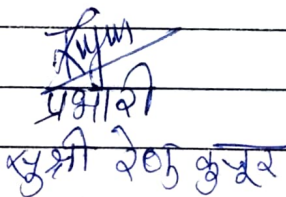 प्रभारी
सुश्री रेणु कुजूर